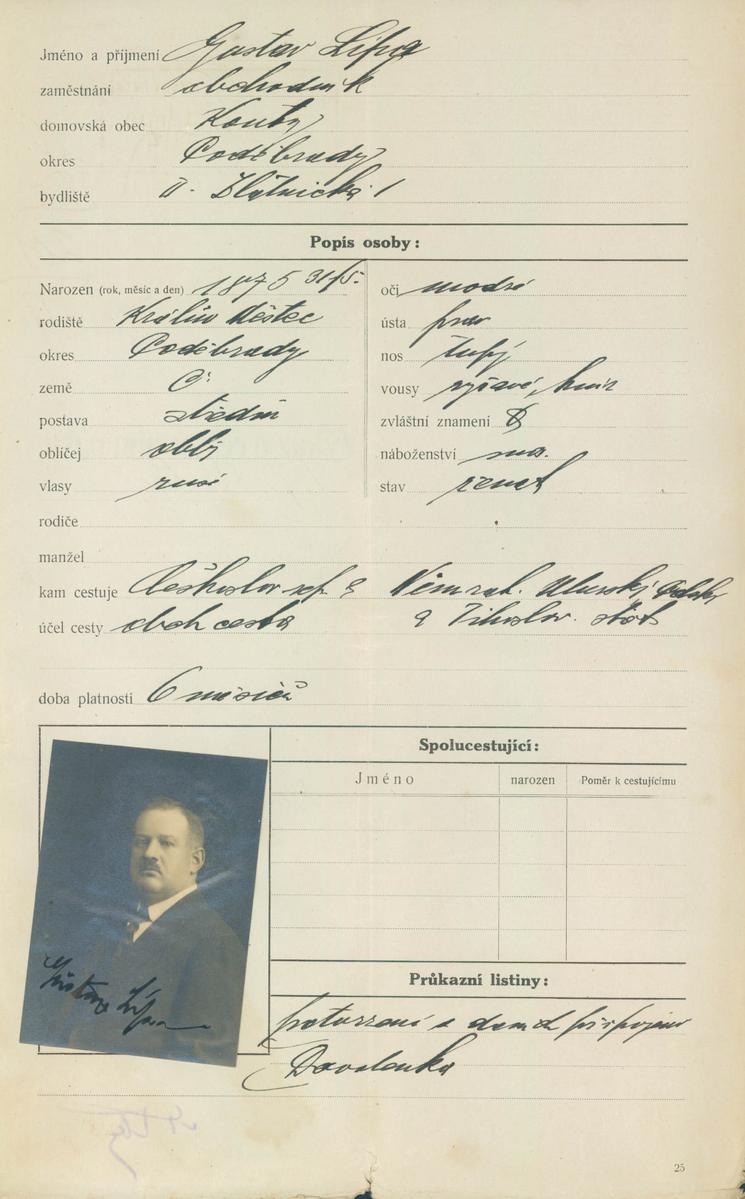 Jméno a příjmení Gustav Lípa
zaměstnání obchodník
domovská obec Kouty
okres Poděbrady
bydliště II. 1
Popis osoby:
Narozen (rok, měsíc a den) 1875 31/5.
rodiště Králův Městec
okres Poděbrady
země Č.
postava střední
obličej oblý
vlasy rusé
oči modré
ústa prav
nos tupý
vousy ryšavé, knír
zvláštní znamení
náboženství
stav ženat
rodiče
manžel
kam cestuje Českoslov. rep. a Něm. rak.
účel cesty obch cesta a stát
doba platnosti 6 měsíců
Spolucestující:
Jméno narozen Poměr k cestujícímu
Gustav Lípa
Průkazní listiny:
potvrzení o
Dovolenka
25